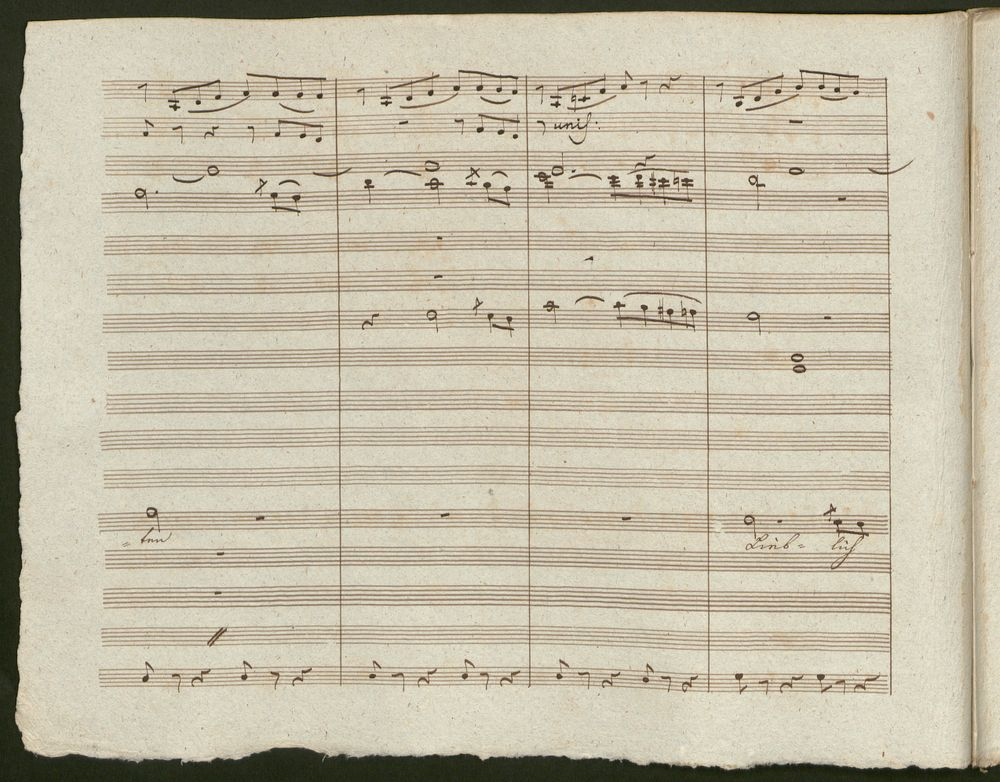 unis:
-ten
Lieb- lich